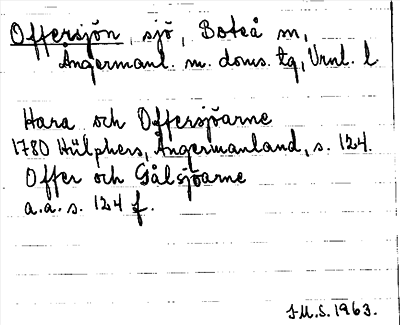 Offersjön, sjö, Boteå sn,
Ångermanl. m. doms. tg, Vrnl. l
Hara och Offersjöarne
1780 Hülphers, Ångermanland, s. 124.
Offer och Gålsjöarne
a.a. s. 124 f.
I.M.S. 1963.